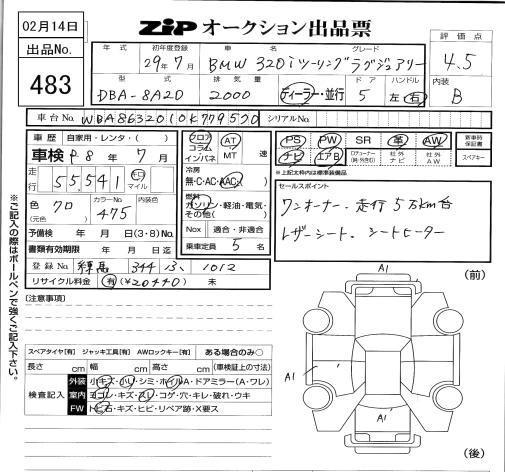 02月14日
ZiP オークション出品票
出品No.
483
評価点
4.5
内装
B
年式 初年度登録 車名 グレード
29年7月 BMW 320iツーリングラグジュアリー
型式 排気量 ドア ハンドル
DBA-8A20 2000 ディーラー・並行 5 左 右
車台No. シリアルNo.
車歴 自家用・レンタ・( )
車検 R8年7月
走行 55,541 km マイル
色 クロ (元色) カラーNo. 475 内装色
予備検 年 月 日(3・8)No.
書類有効期限 年 月 日迄
登録No. 練馬 344 1012
リサイクル料金 有(¥20440) 未
フロア コラム インパネ
AT MT 速
冷房 無・C・AC・AAC
燃料 ガソリン・軽油・電気・その他( )
Nox 適合・非適合
乗車定員 5名
PS PW SR 革 AW
ナビ エアB 社外ナビ 社外AW
新車時保証書
スペアキー
※上記太枠内は標準装備品
セールスポイント
ワンオーナー、走行5万km台
レザーシート、シートヒーター
[注意事項]
スペアタイヤ[有] ジャッキ工具[有] AWロックキー[有] ある場合のみ○
長さ cm 幅 cm 高さ cm (車検証上の寸法)
検査記入
外装 小キズ・小凹・シミ・ホイルA・ドアミラー(A・ワレ)
室内 ヨゴレ・キズ・スレ・コゲ・穴・キレ・破れ・ウキ
FW トビ石・キズ・ヒビ・リペア跡・X要ス
※ご記入の際はボールペンで強くご記入下さい。
(前)
A1
A1
A1
A1
(後)